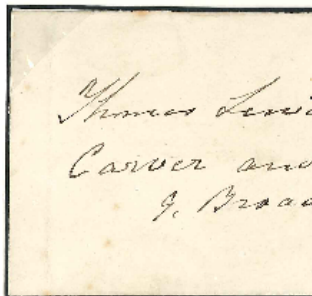 Thomas Lewi
Carver and
J. Broad